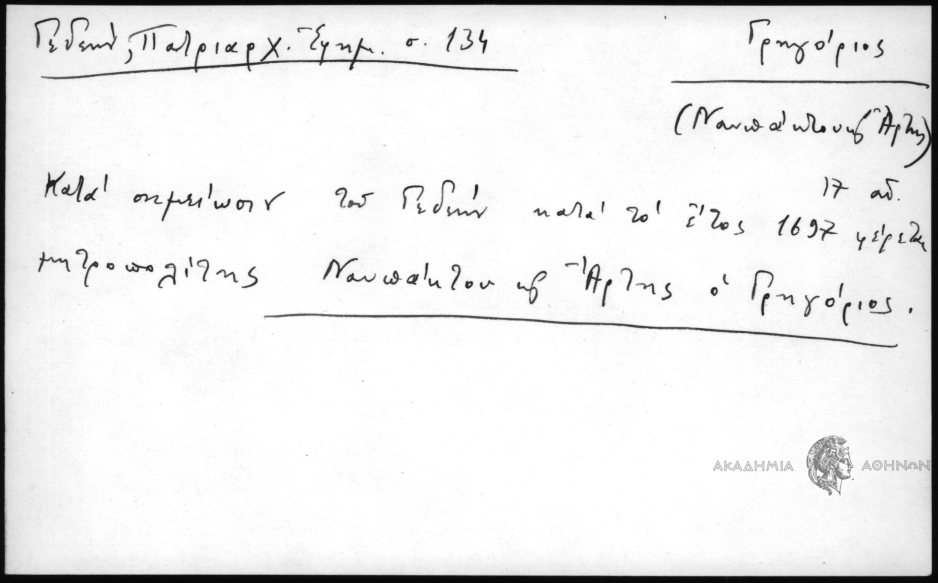 Γεδεών, Πατριαρχ. Ἐφημ. σ. 134
Γρηγόριος
(Ναυπάκτου κ Ἄρτης)
17 αἰ.
Κατά σημείωσιν τοῦ Γεδεών κατά τό ἔτος 1697 φέρεται
μητροπολίτης Ναυπάκτου κ Ἄρτης ὁ Γρηγόριος.
ΑΚΑΔΗΜΙΑ ΑΘΗΝΩΝ